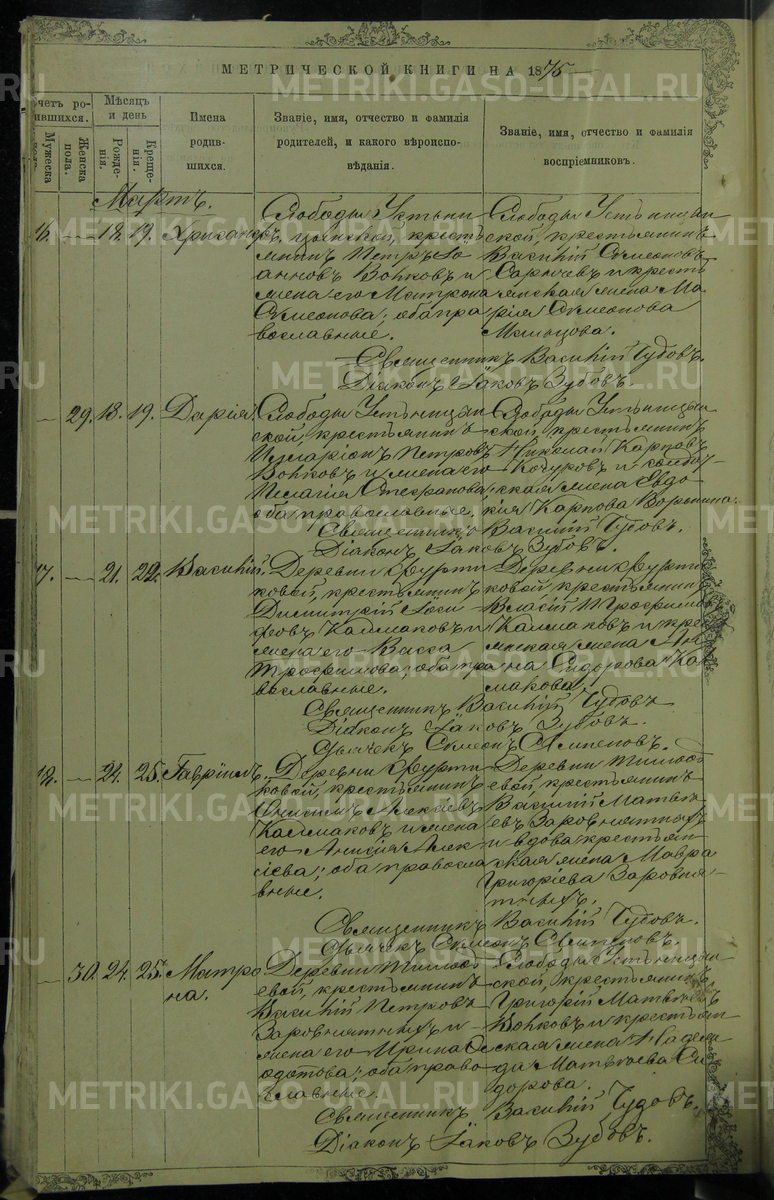 МЕТРИЧЕСКОЙ КНИГИ НА 1875
Счетъ родившихся.
Мужеска пола.
Женска пола.
Мѣсяцъ и день
Рожденія.
Крещенія.
Имена родившихся.
Званіе, имя, отчество и фамилія родителей, и какого вѣроисповѣданія.
Званіе, имя, отчество и фамилія воспріемниковъ.
Мартъ.
16. — 18. 19. Хрисанфъ
Слободы Устьни
цынской, крестья
нинъ Петръ Іо
анновъ Волковъ и
жена его Матрона
Симеонова; оба пра
вославные.
Слободы Устьницын
ской, крестьянинъ
Василій Симеоновъ
и кресть
янская жена Ма
рія Симеонова
Мальцова.
Священникъ Василій Чудовъ.
Діаконъ Іаковъ Зубовъ.
— 29. 18. 19. Дарія.
Слободы Устьницын
ской, крестьянинъ
Илларіонъ Петровъ
Волковъ и жена его
Пелагія Стефанова;
оба православные.
Слободы Устьницын
ской, крестьянинъ
Николай Карповъ
Кочуровъ и
ская жена Евдо
кія Карпова Воронина.
Священникъ Василій Чудовъ.
Діаконъ Іаковъ Зубовъ.
17. — 21. 22. Василій.
Деревни Фурти
ковой, крестьянинъ
Димитрій Іоси
фовъ Калмаковъ и
жена его Васса
Трофимова; оба пра
вославные.
Деревни Фурти
ковой, крестьянинъ
Власій Трофимовъ
Калмаковъ и крестья
нская жена Ан
на Сидорова Кал
макова.
Священникъ Василій Чудовъ
Діаконъ Іаковъ Зубовъ.
Дьячекъ Симеонъ
18. — 24. 25. Гавріилъ.
Деревни Фурти
ковой, крестьянинъ
Онисимъ Алексѣевъ
Калмаковъ и жена
его Анисія Алек
сіева; оба правосла
вные.
Деревни
евой, крестьянинъ
Василій Матвѣ
евъ Заровнятныхъ
и вдова крестьян
ская жена Мавра
Григоріева Заровня
тныхъ.
Священникъ Василій Чудовъ.
Дьячекъ Симеонъ
— 30. 24. 25. Матро
на.
Деревни
евой, крестьянинъ
Василій Петровъ
Заровнятныхъ и
жена его Ирина Ѳе
одотова; оба право
славные.
Слободы Устьницын
ской, крестьянинъ
Григорій Матвѣевъ
Волковъ и крестьян
ская жена Надеж
да Матвѣева Си
дорова.
Священникъ Василій Чудовъ.
Діаконъ Іаковъ Зубовъ.
METRIKI.GASO-URAL.RU